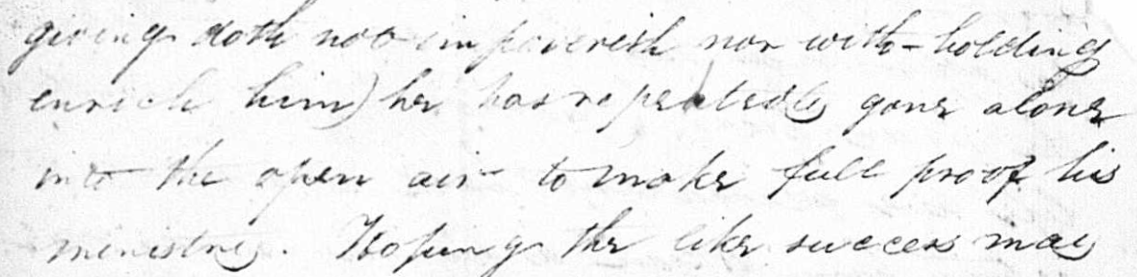 giving doth not impoverish nor with-holding
enrich him) he has repeatedly gone alone
into the open air to make full proof his
ministry. Hoping the like success may